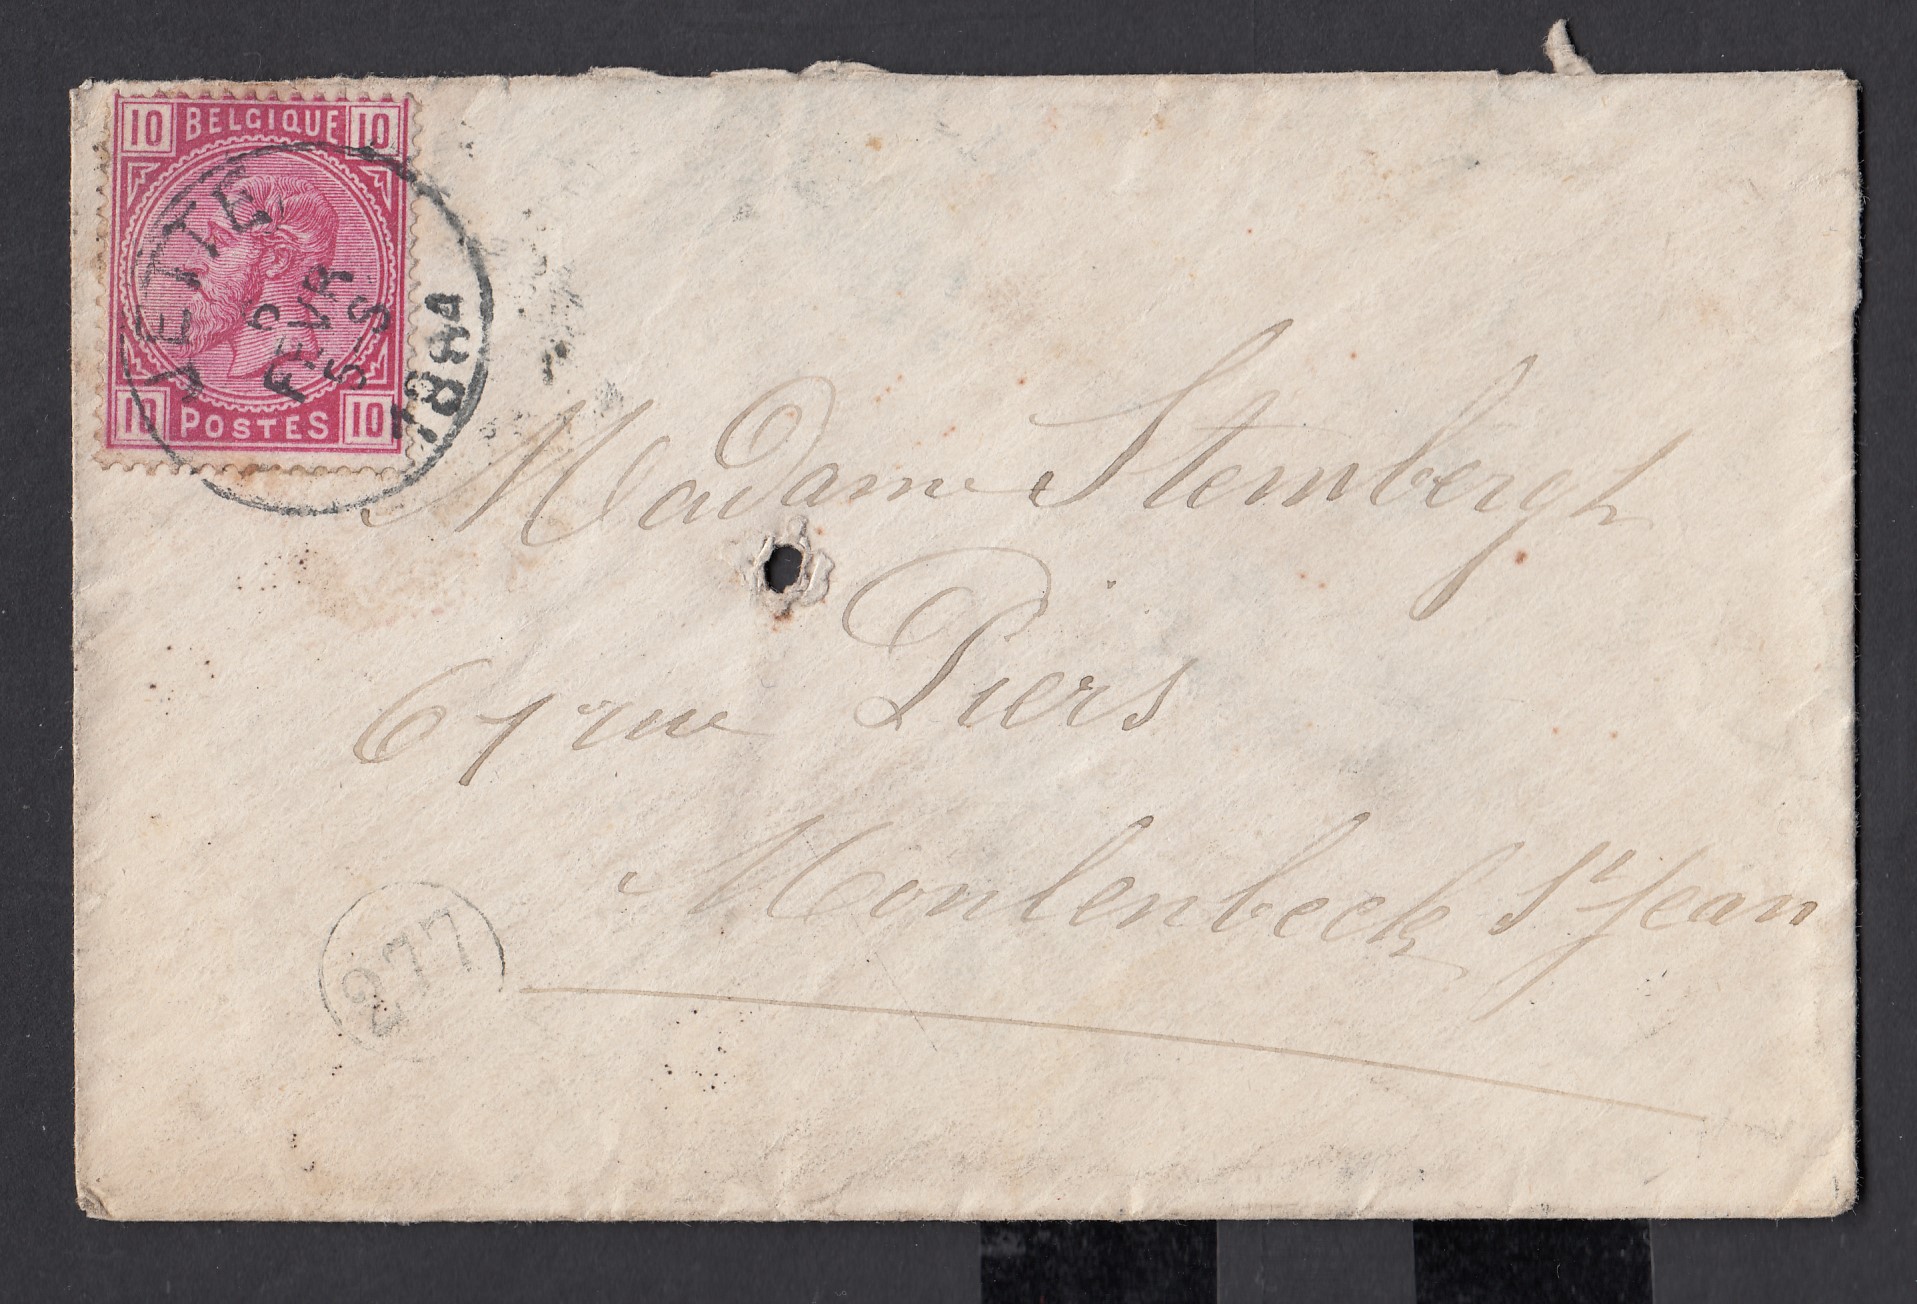 10 BELGIQUE 10
10 POSTES 10
JETTE
5
FEVR
5-S
1884
Madame Stembergh
61 rue Piers
Moulenbeek St Jean
277